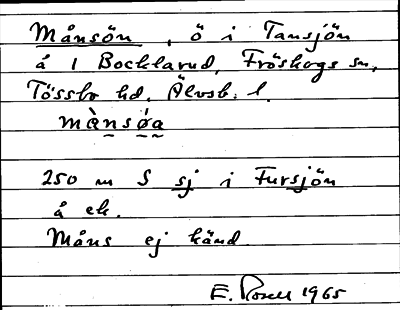 Månsön, ö i Tansjön
å 1 Bocklarud, Fröskogs sn,
Tössbo hd. Älvsb. l.
mànsǿa
250 m S sj i Fursjön
å ek.
Måns ej känd.
E. Rosell 1965